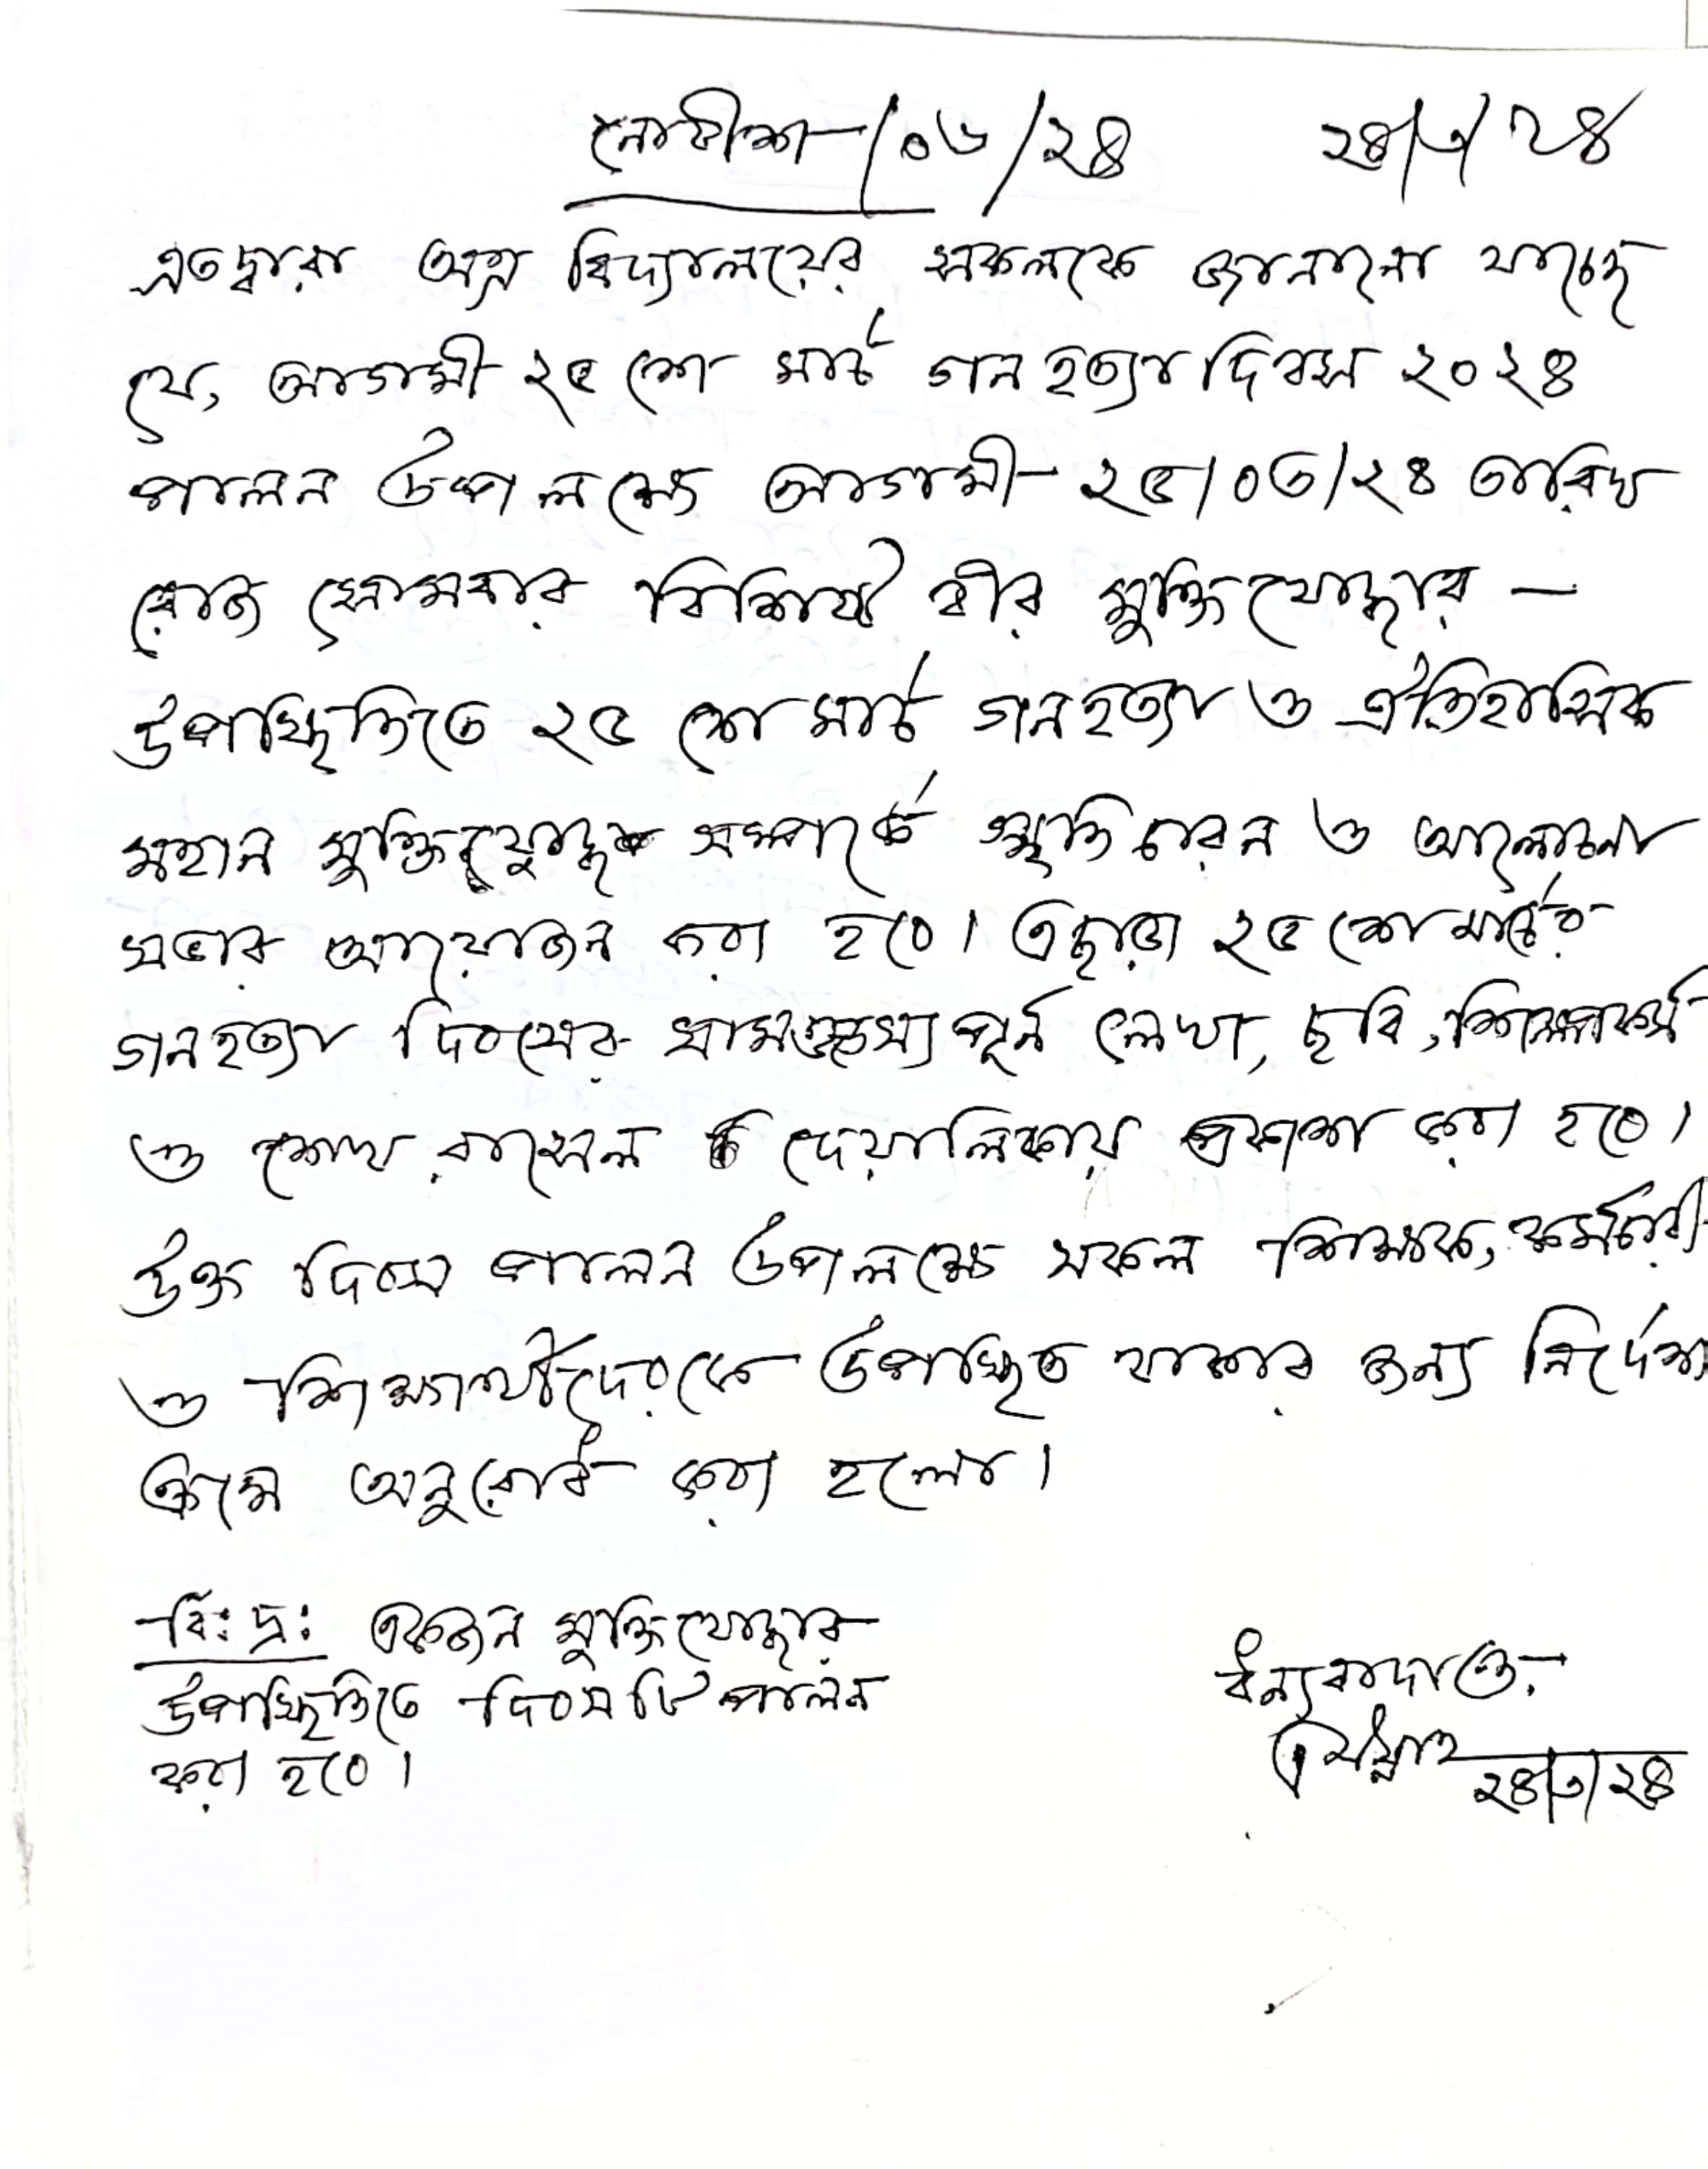 নোটীশ-/০৬/২৪ ২৪/৩/২৪
এতদ্বারা অত্র বিদ্যালয়ের সকলকে জানানো যাচ্ছে
যে, আগামী ২৫ শে মার্চ গনহত্যা দিবস ২০২৪
পালন উপলক্ষ্যে আগামী ২৫/০৩/২৪ তারিখ
রোজ সোমবার বিশিষ্ট বীর মুক্তিযোদ্ধার -
উপস্থিতিতে ২৫ শে মার্চ গনহত্যা ও ঐতিহাসিক
মহান মুক্তিযুদ্ধ সম্পর্কে স্মৃতি চারন ও আলোচনা
সভার আয়োজন করা হবে। এছাড়া ২৫ শে মার্চের
গনহত্যা দিবসের সামঞ্জস্য পূর্ন লেখা, ছবি, শিল্পকর্ম
ও শেখ রাসেল দেয়ালিকায় প্রকাশ করা হবে।
উক্ত দিবস পালন উপলক্ষ্যে সকল শিক্ষক, কর্মচারী
ও শিক্ষার্থীদেরকে উপস্থিত থাকার জন্য নির্দেশ
ক্রমে অনুরোধ করা হলো।
বি: দ্র: একজন মুক্তিযোদ্ধার
উপস্থিতিতে দিবসটি পালন
করা হবে।
ধন্যবাদান্তে.
২৪/৩/২৪